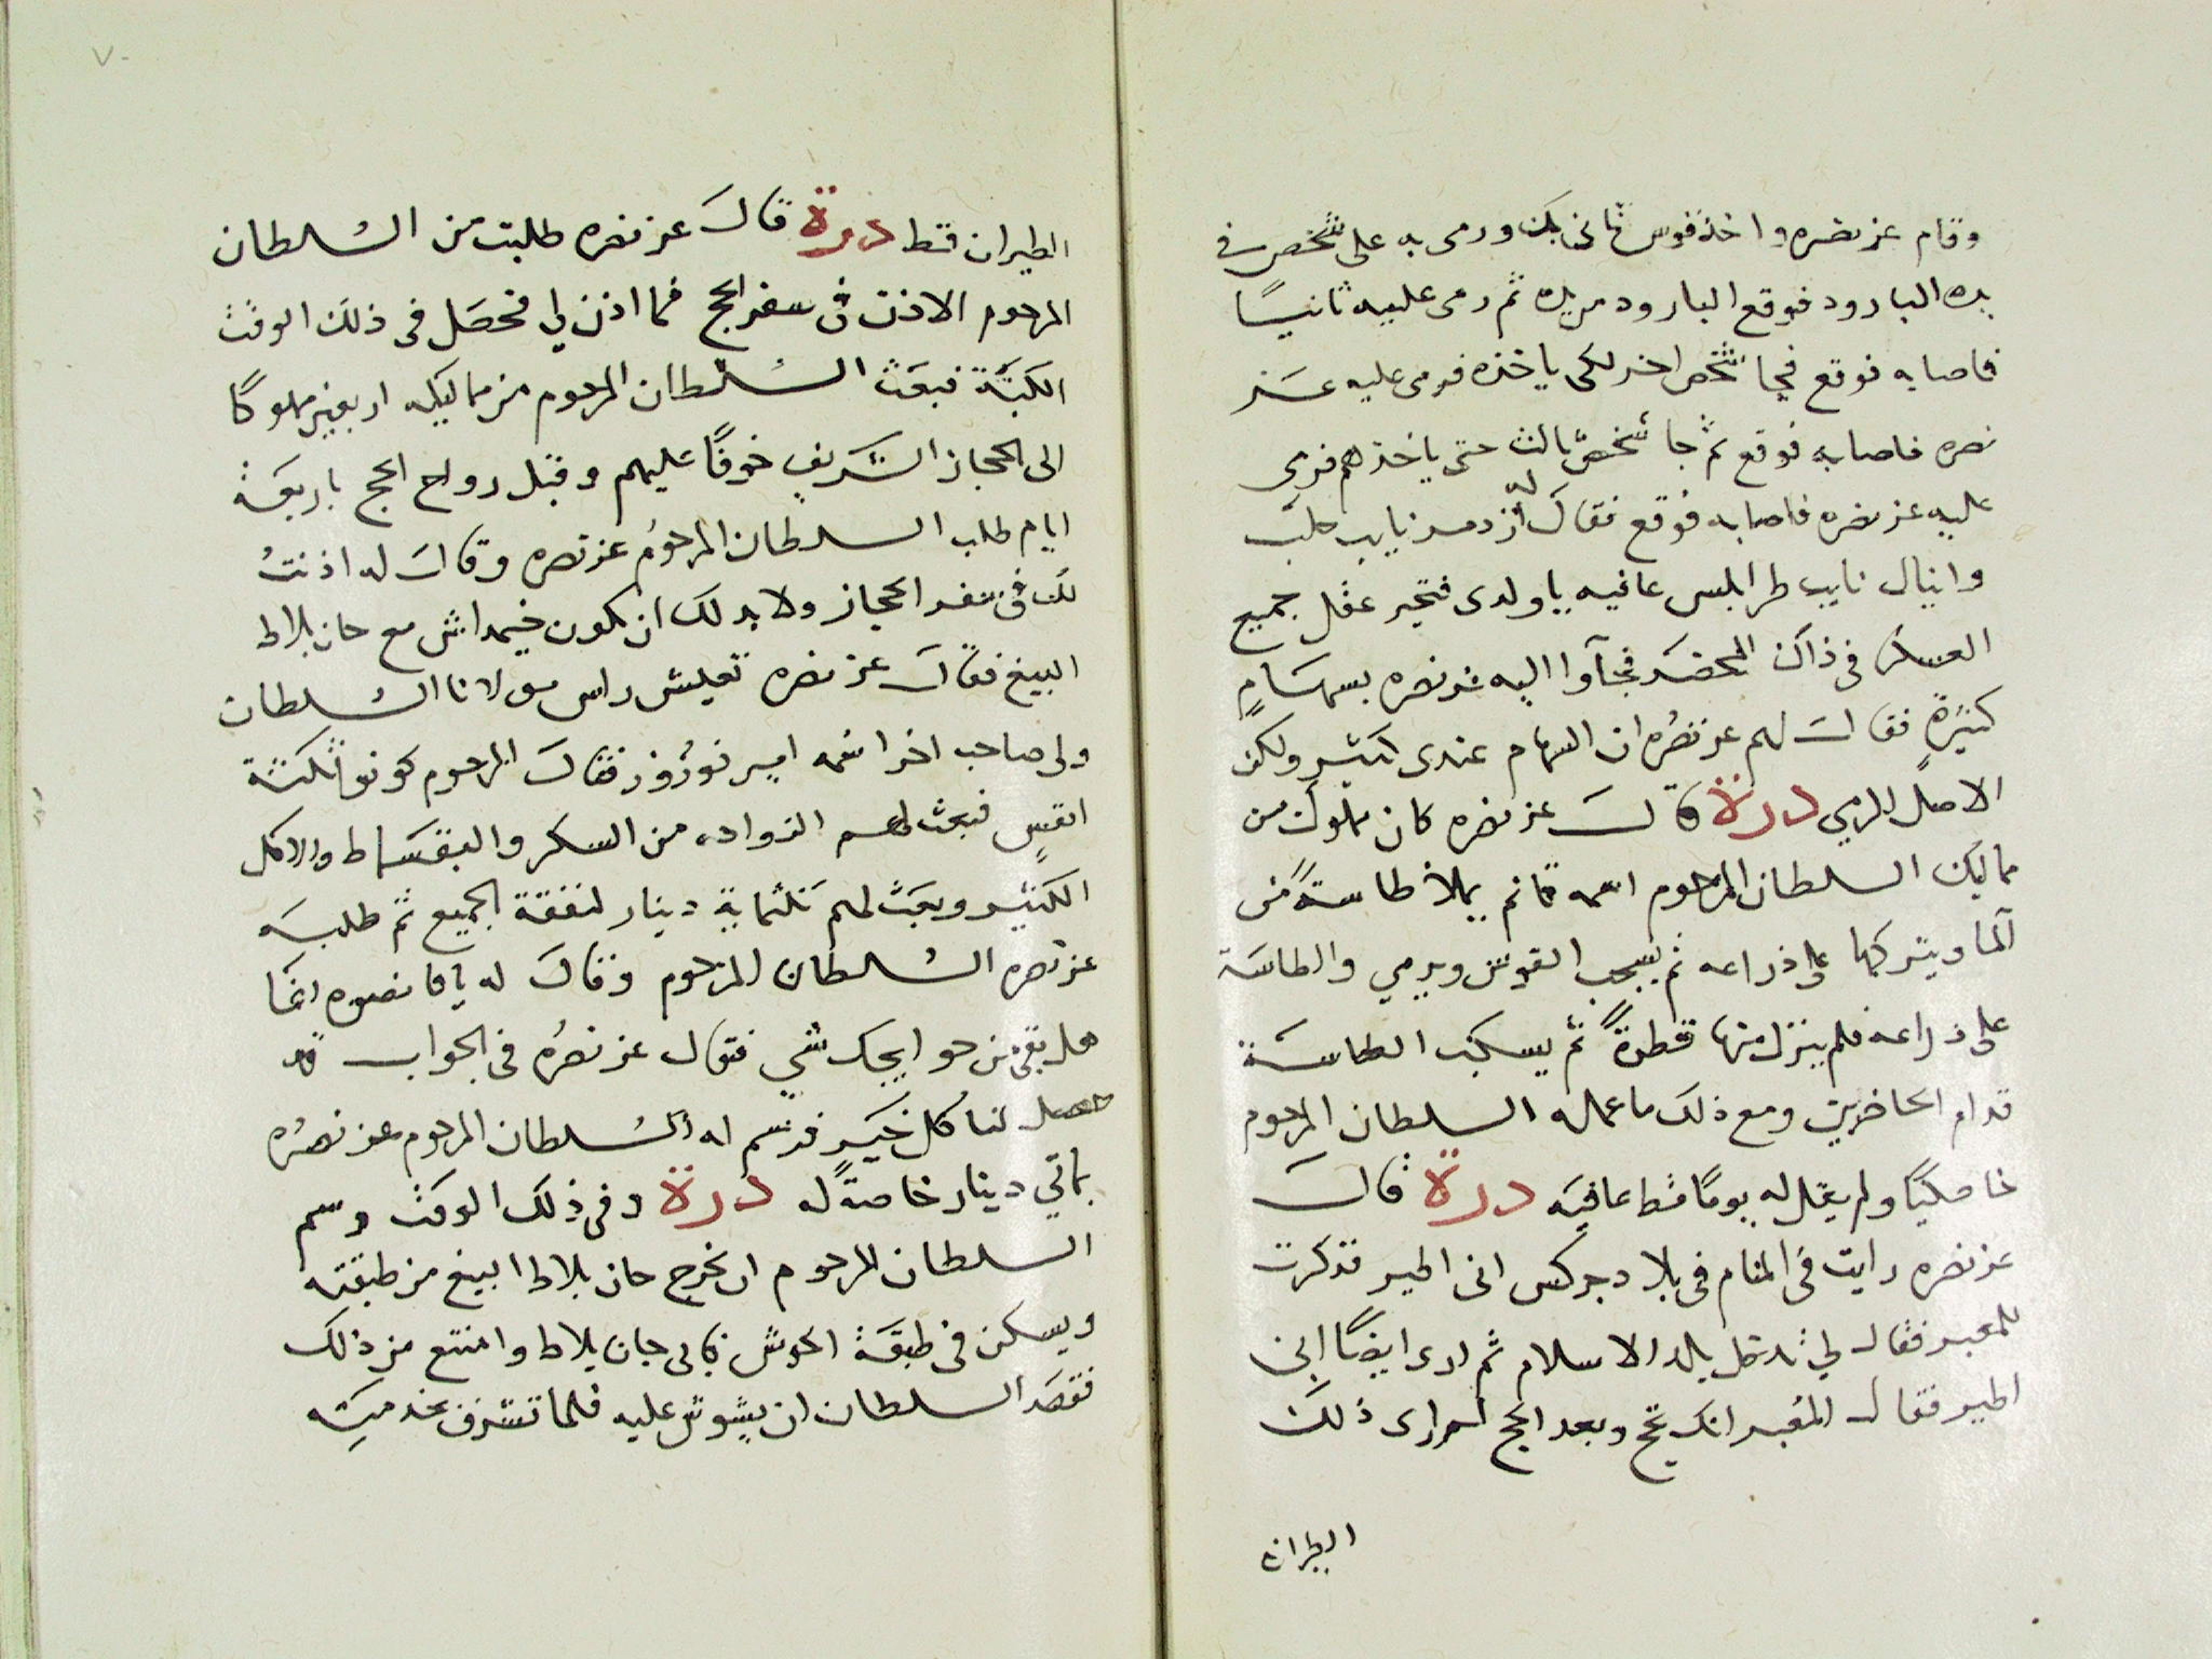 وقام عز نصره واخذ قوس ثانى بك ورمى به على شخص فى
يده البارود فوقع البارود من يده ثم رمى عليه ثانيًا
فاصابه فوقع فجا شخص اخر لكى ياخذه فرمى عليه عـز
نصره فاصابه فوقع ثم جا شخصٌ ثالث حتى ياخذهم فرمى
عليه عز نصره فاصابه فوقع فقال له ازدمر نايب حلب
واينال نايب طرابلس عافيه ياولدى فتحير عقل جميع
العسكر فى ذاك المحضر فجآوا اليه عز نصره بسهامٍ
كثيرةٍ فقال لهم عز نصرُه ان السهام عندى كثير ولكن
الاصل الرمي درة قال عز نصره كان مملوك من
ماليك السلطان المرحوم اسمه قانم يملا طاسةً من
آلما ويتركها على ذراعه ثم يسحب القوس ويرمي والطاسة
على ذراعه فلم ينزل منها قطرةً ثم يسكب الطاسة
قدام الحاضرين ومع ذلك ما عمله السلطان المرحوم
خاصكيًا ولم يقل له يومًا قط عافيه درة قال
عز نصره رايت فى المنام فى بلاد جركس انى اطير فذكرت
للمعبر فقال لي تدخل بلد الاسلام ثم ارى ايضًا انى
اطير فقال المعبر انك تحج وبعد الحج لم ارى ذلك
الطيران
٧٠
الطيران قط درة قال عز نصره طلبت من السلطان
المرحوم الاذن فى سفر الحج فما اذن لي فحصل فى ذلك الوقت
الكبَّة فبعث السلطان المرحوم من ماليكه اربعين مملوكًا
الى الحجاز الشريف خوفًا عليهم وقبل رواح الحج باربعة
ايام طلب السلطان المرحوم عز نصره وقال له اذنتُ
لك فى سفر الحجاز ولا بد لك ان تكون خيمداش مع جان بلاط
البيغ فقال عز نصره تعيش راس مولانا السلطان
ولى صاحب اخر اسمه امير نوروز فقال المرحوم كونوا ثلثة
انفسٍ فبعث لهم الزواده من السكر والبقسماط والاكل
الكثير وبعث لهم ثلثماية دينار لنفقة الجميع ثم طلبه
عز نصره السلطان المرحوم وقال له يا قانصوه انما
هل بقى من حوايجك شي فقال عز نصرُه فى الجواب قد
حصل لنا كل خيرٍ فرسم له السلطان المرحوم عز نصرُه
بماتي دينار خاصةً له درة وفى ذلك الوقت رسم
السلطان المرحوم ان يخرج جان بلاط البيغ من طبقته
ويسكن فى طبقة الحوش فابى جان بلاط وامتنع من ذلك
فقصد السلطان ان يشوش عليه فلما تشرف بخدمته